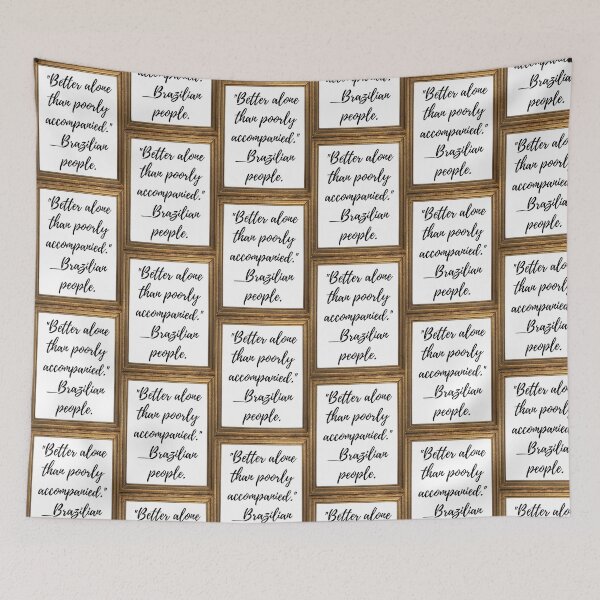 "Better alone
than poorly
accompanied."
_Brazilian
people.
"Better alone
than poorly
accompanied."
_Brazilian
people.
"Better alone
than poorly
accompanied."
_Brazilian
people.
"Better alone
than poorly
accompanied."
_Brazilian
accompanied."
_Brazilian
people.
"Better alone
than poorly
accompanied."
_Brazilian
people.
"Better alone
than poorly
accompanied."
_Brazilian
people.
"Better alone
than poorly
accompanied."
_Brazilian
people.
"Better alone
"Better alone
than poorly
accompanied."
_Brazilian
people.
"Better alone
than poorly
accompanied."
_Brazilian
people.
"Better alone
than poorly
accompanied."
_Brazilian
people.
"Better alone
than poorly
accompanied."
_Brazilian
_Brazilian
people.
"Better alone
than poorly
accompanied."
_Brazilian
people.
"Better alone
than poorly
accompanied."
_Brazilian
people.
"Better alone
than poorly
accompanied."
_Brazilian
people.
"Better alone
"Better alone
than poorly
accompanied."
_Brazilian
people.
"Better alone
than poorly
accompanied."
_Brazilian
people.
"Better alone
than poorly
accompanied."
_Brazilian
people.
"Better alone
than poorly
accompanied."
_Brazilian
_Brazilian
people.
"Better alone
than poorly
accompanied."
_Brazilian
people.
"Better alone
than poorly
accompanied."
_Brazilian
people.
"Better alone
than poorly
accompanied."
_Brazilian
people.
"Better alone